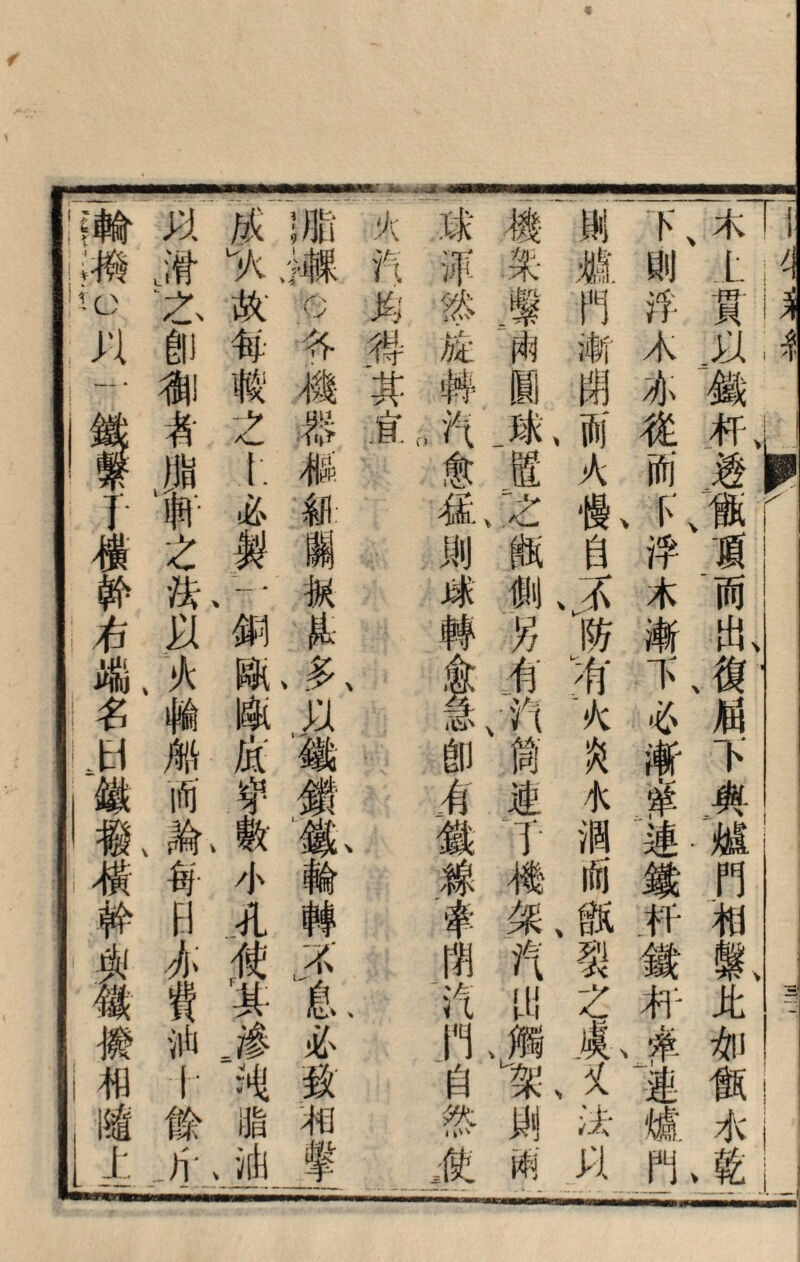 木上貫以鐵杆、透甑頂而出、復屈下與爐門相繫、此如甑水乾
下、則浮木亦從而下、浮木漸下、必漸牽連鐵杆鐵杆牽連爐門、
則爐門漸閉而火慢、自不防有火炎水涸而甑裂之虞、又法以
機架繫兩圓球、置之甑側、另有汽筒連于機架、汽出觸架、則兩
球渾然旋轉汽愈猛、則球轉愈急、卽有鐵線牽閉汽門、自然使
火汽均得其宜。
脂輠○各機器樞紐關捩甚多、以鐵鑽鐵、輪轉不息、必致相擊
成火故每輠之上必製一銅甌、甌底穿數小孔使其滲洩脂油
以滑之、卽御者脂軒之法、以火輪船而論、每日亦費油十餘斤、
輪撥○以一鐵繫于橫幹右端、名曰鐵撥、橫幹與鐵撥相隨上